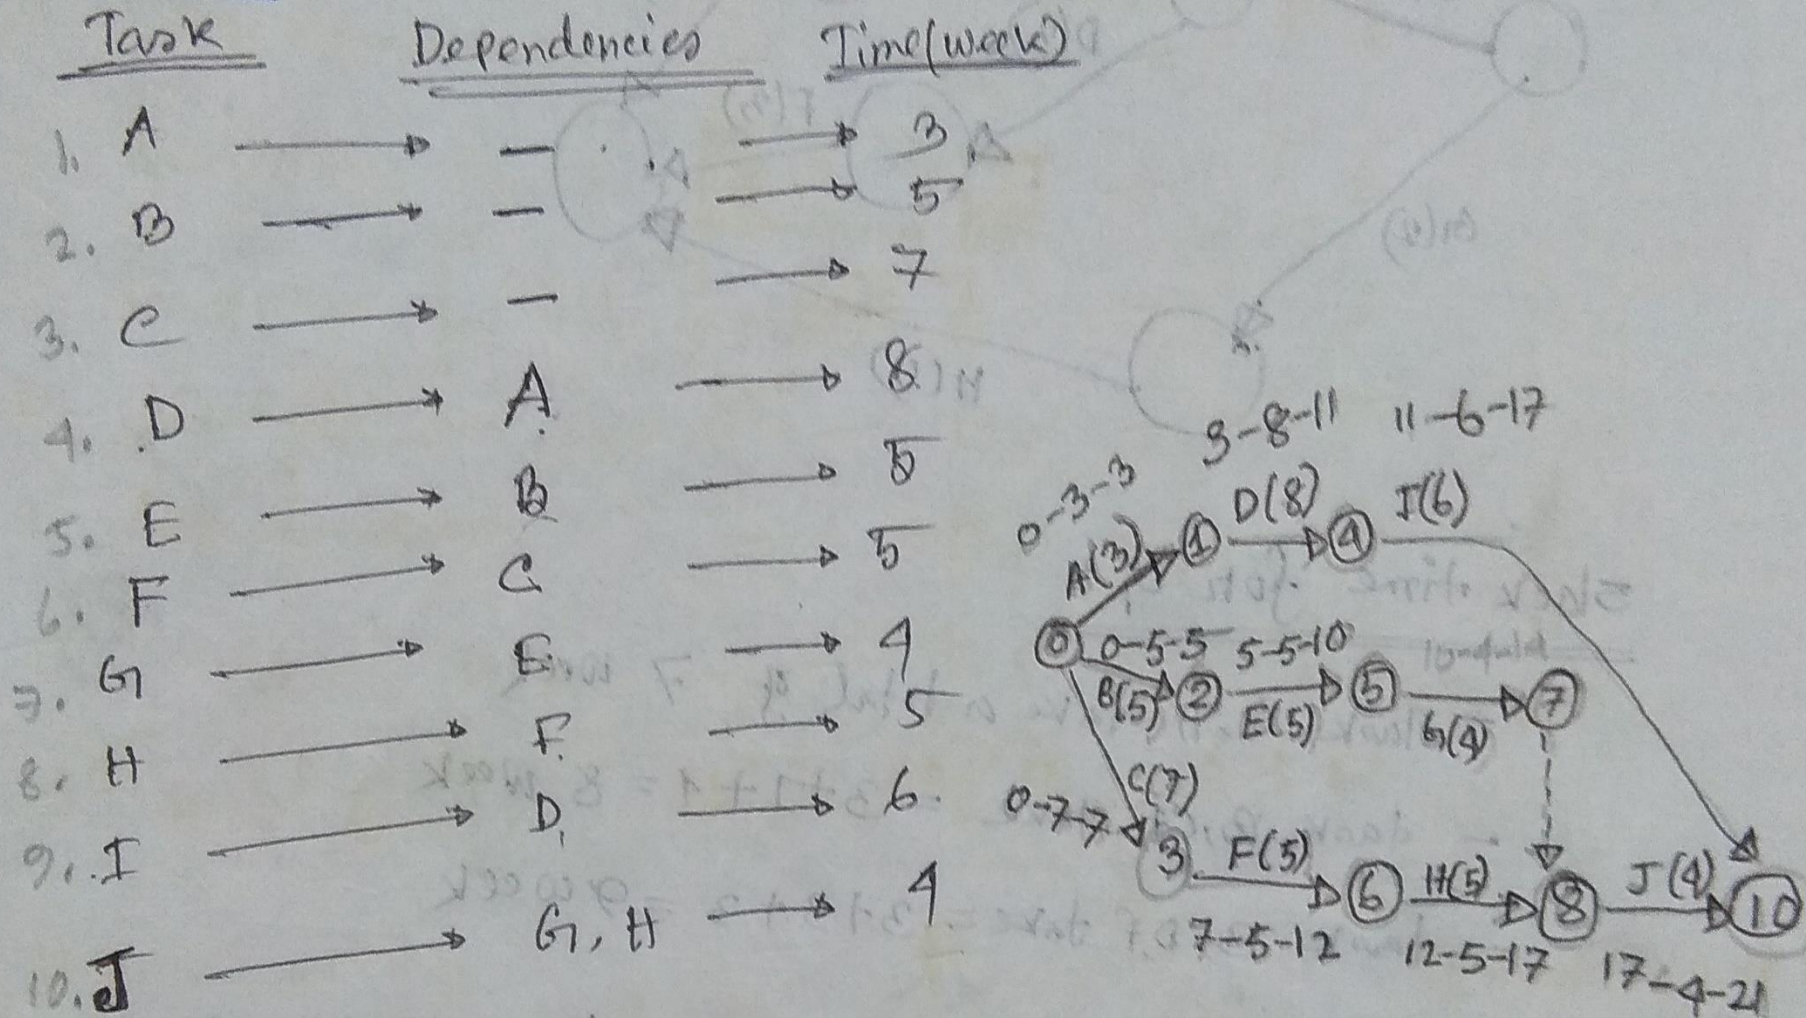 Task Dependencies Time(week)
1. A → – → 3
2. B → – → 5
3. C → – → 7
4. D → A → 8
5. E → B → 5
6. F → C → 5
7. G → E → 4
8. H → F → 5
9. I → D → 6
10. J → G, H → 4
3-8-11 11-6-17
0-3-3 D(8) I(6)
A(3) 1 4
0 0-5-5 5-5-10
B(5) 2 E(5) 5 G(4) 7
C(7)
0-7-7
3 F(5) 6 H(5) 8 J(4) 10
7-5-12 12-5-17 17-4-21